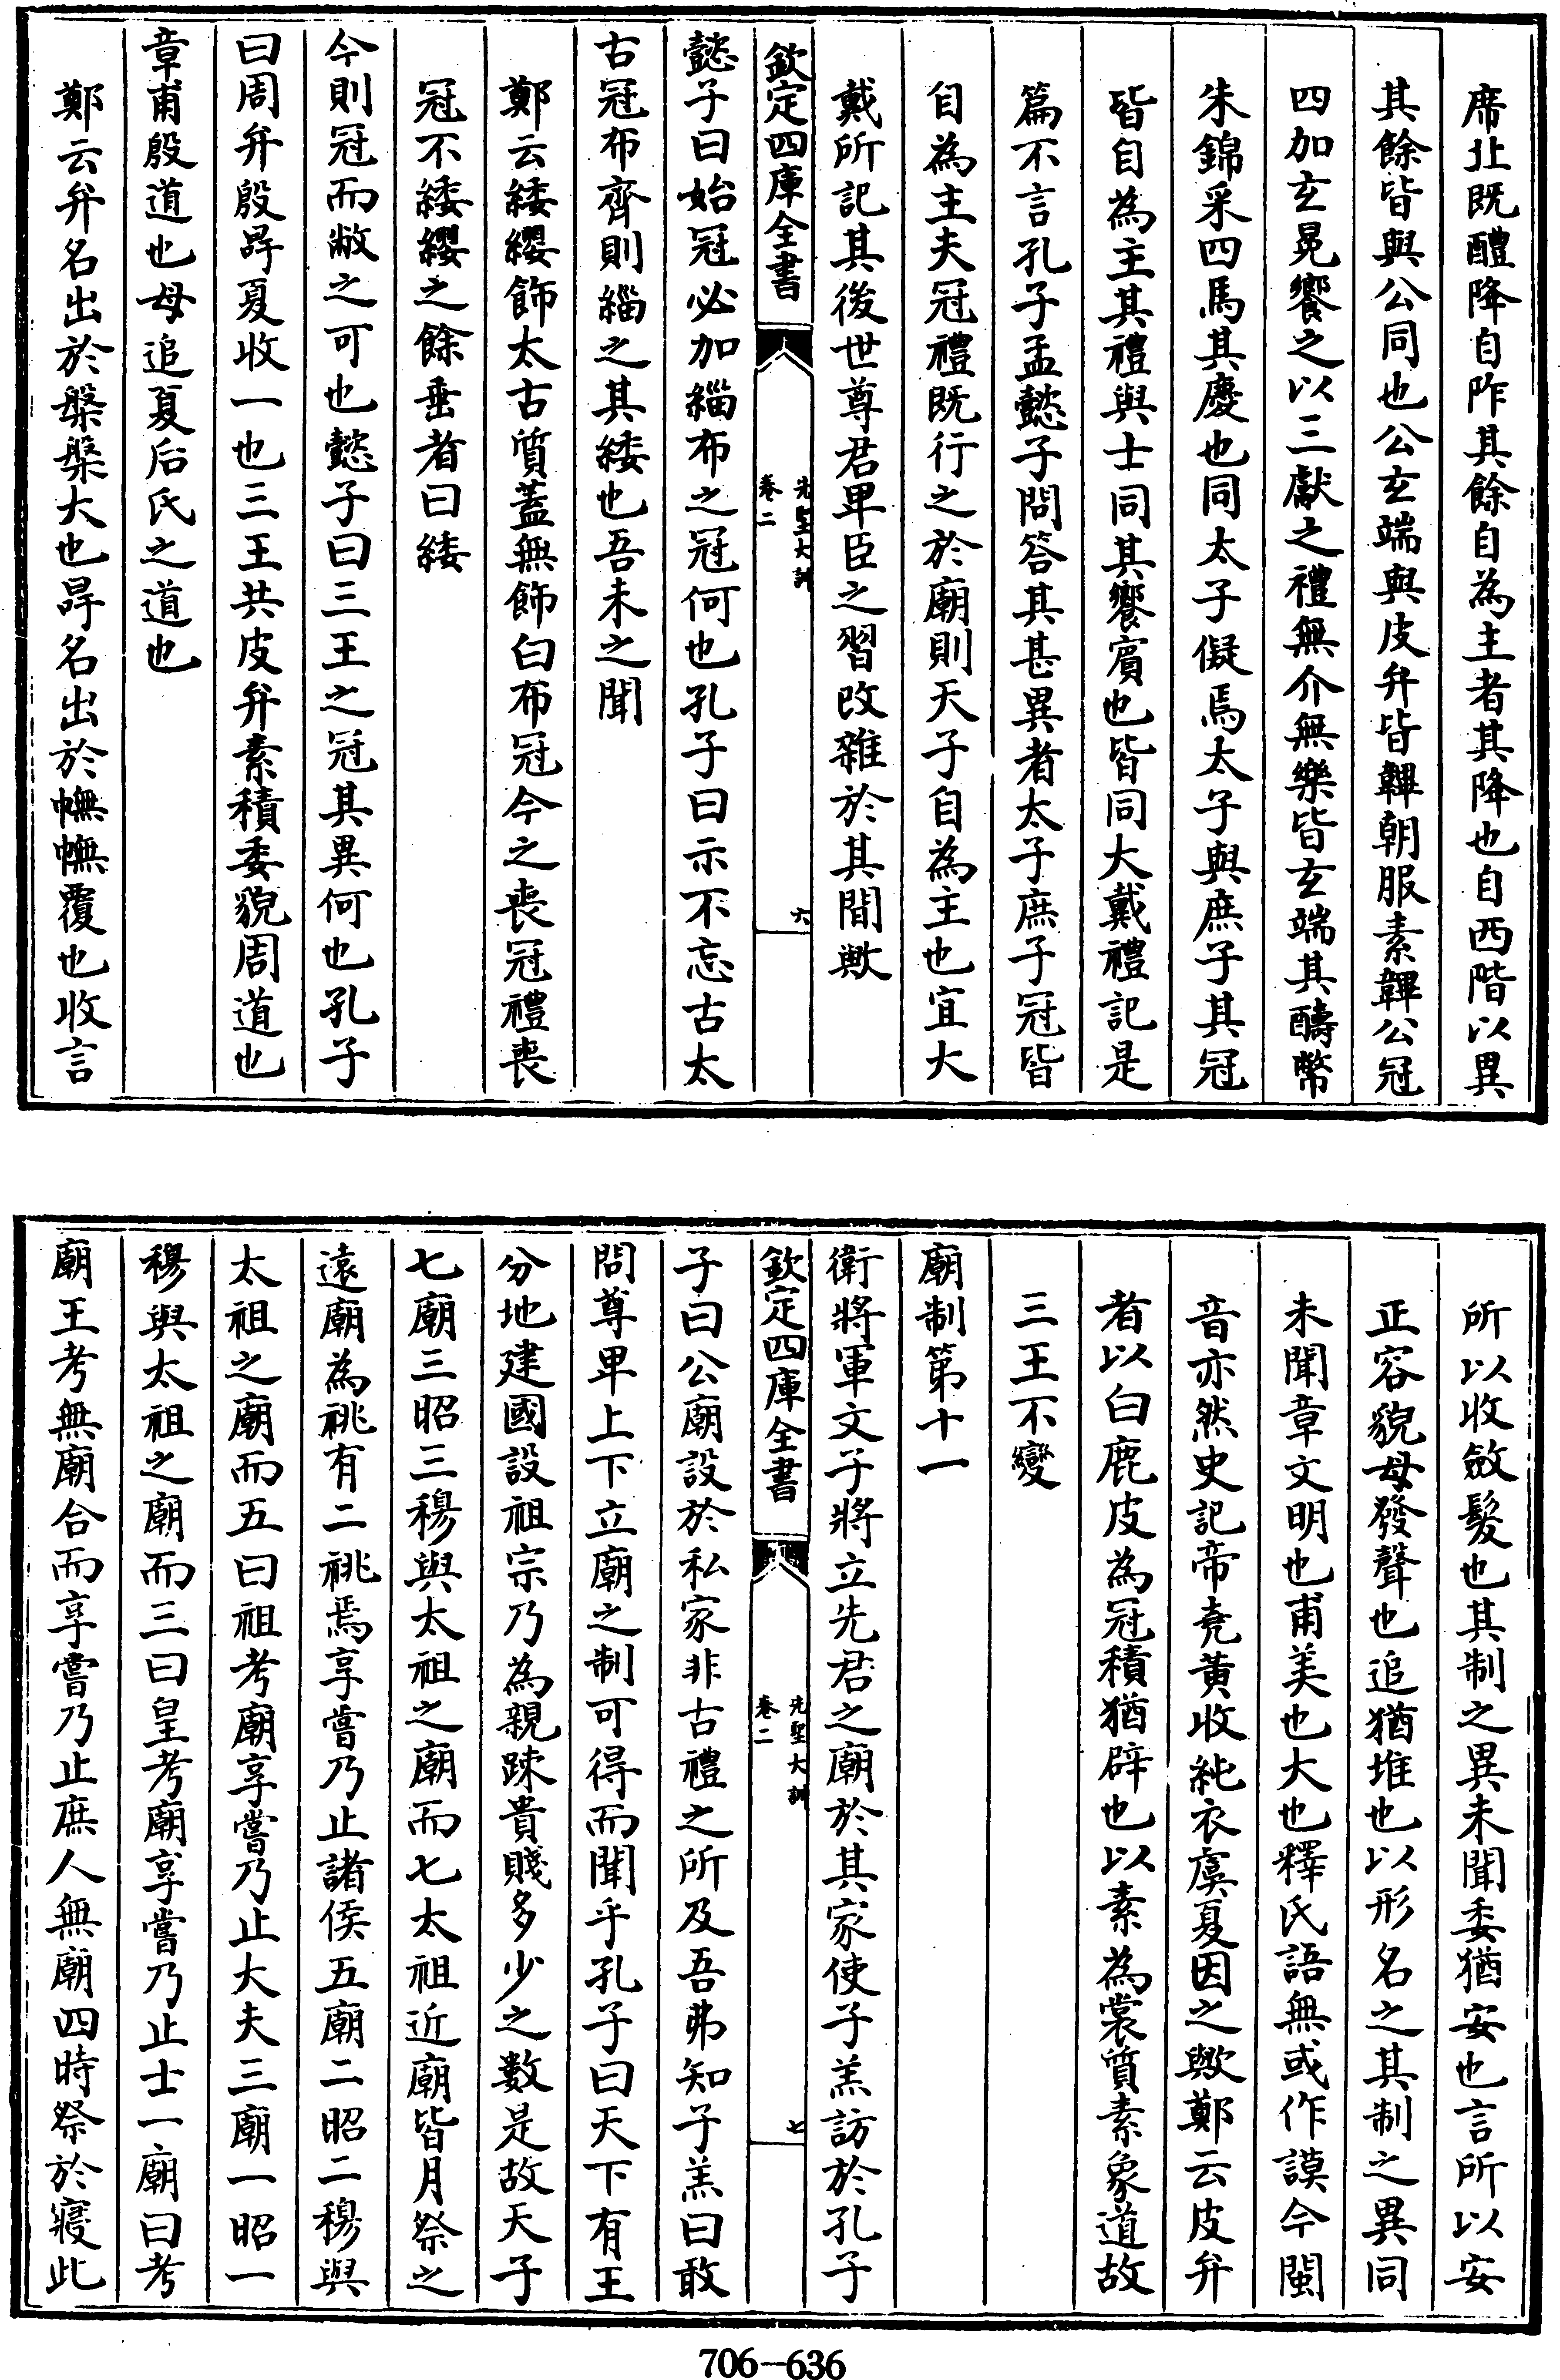 席北既醴降自阼其餘自為主者其降也自西階以異
其餘皆與公同也公玄端與皮弁皆韠朝服素韠公冠
四加玄冕饗之以三獻之禮無介無樂皆玄端其醻幣
朱錦采四馬其慶也同太子儗焉太子與庶子其冠
皆自為主其禮與士同其饗賓也皆同大戴禮記是
篇不言孔子孟懿子問答其甚異者太子庶子冠皆
自為主夫冠禮既行之於廟則天子自為主也宜大
戴所記其後世尊君卑臣之習改雜於其間歟
欽定四庫全書
先聖大訓
卷二
六
懿子曰始冠必加緇布之冠何也孔子曰示不忘古太
古冠布齊則緇之其緌也吾未之聞
鄭云緌纓飾太古質蓋無飾白布冠今之喪冠禮喪
冠不緌纓之餘垂者曰緌
今則冠而敝之可也懿子曰三王之冠其異何也孔子
曰周弁殷冔夏收一也三王共皮弁素積委貌周道也
章甫殷道也毋追夏后氏之道也
鄭云弁名出於槃槃大也冔名出於幠幠覆也收言
所以收斂髮也其制之異未聞委猶安也言所以安
正容貌毋發聲也追猶堆也以形名之其制之異同
未聞章文明也甫美也大也釋氏語無或作謨今閩
音亦然史記帝堯黃收純衣虞夏因之歟鄭云皮弁
者以白鹿皮為冠積猶辟也以素為裳質素象道故
三王不變
廟制第十一
衛將軍文子將立先君之廟於其家使子羔訪於孔子
欽定四庫全書
先聖大訓
卷二
七
子曰公廟設於私家非古禮之所及吾弗知子羔曰敢
問尊卑上下立廟之制可得而聞乎孔子曰天下有王
分地建國設祖宗乃為親踈貴賤多少之數是故天子
七廟三昭三穆與太祖之廟而七太祖近廟皆月祭之
遠廟為祧有二祧焉享嘗乃止諸侯五廟二昭二穆與
太祖之廟而五曰祖考廟享嘗乃止大夫三廟一昭一
穆與太祖之廟而三曰皇考廟享嘗乃止士一廟曰考
廟王考無廟合而享嘗乃止庶人無廟四時祭於寢此
706—636